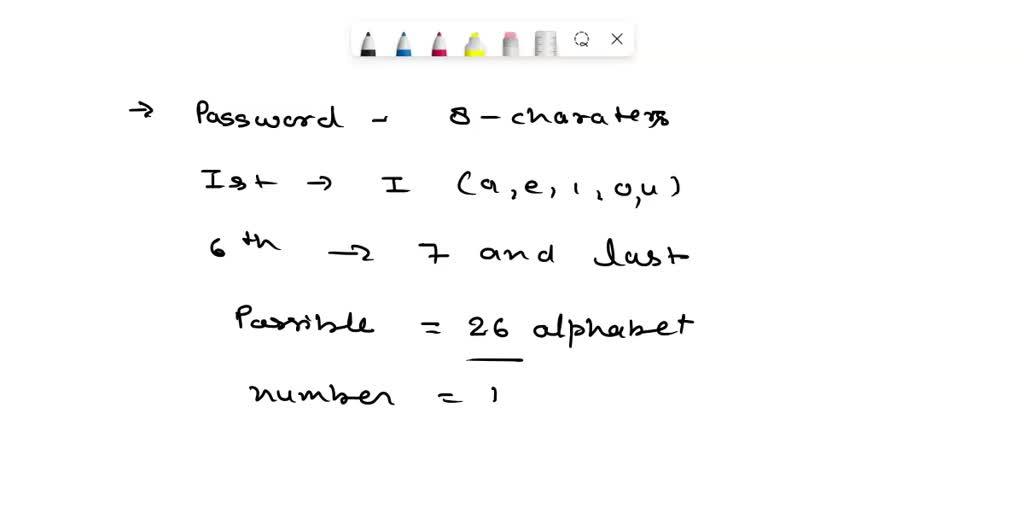 → Password - 8-charaters
Ist → I (a, e, i, o, u)
6th → 7 and last
Possible = 26 alphabet
number = 1